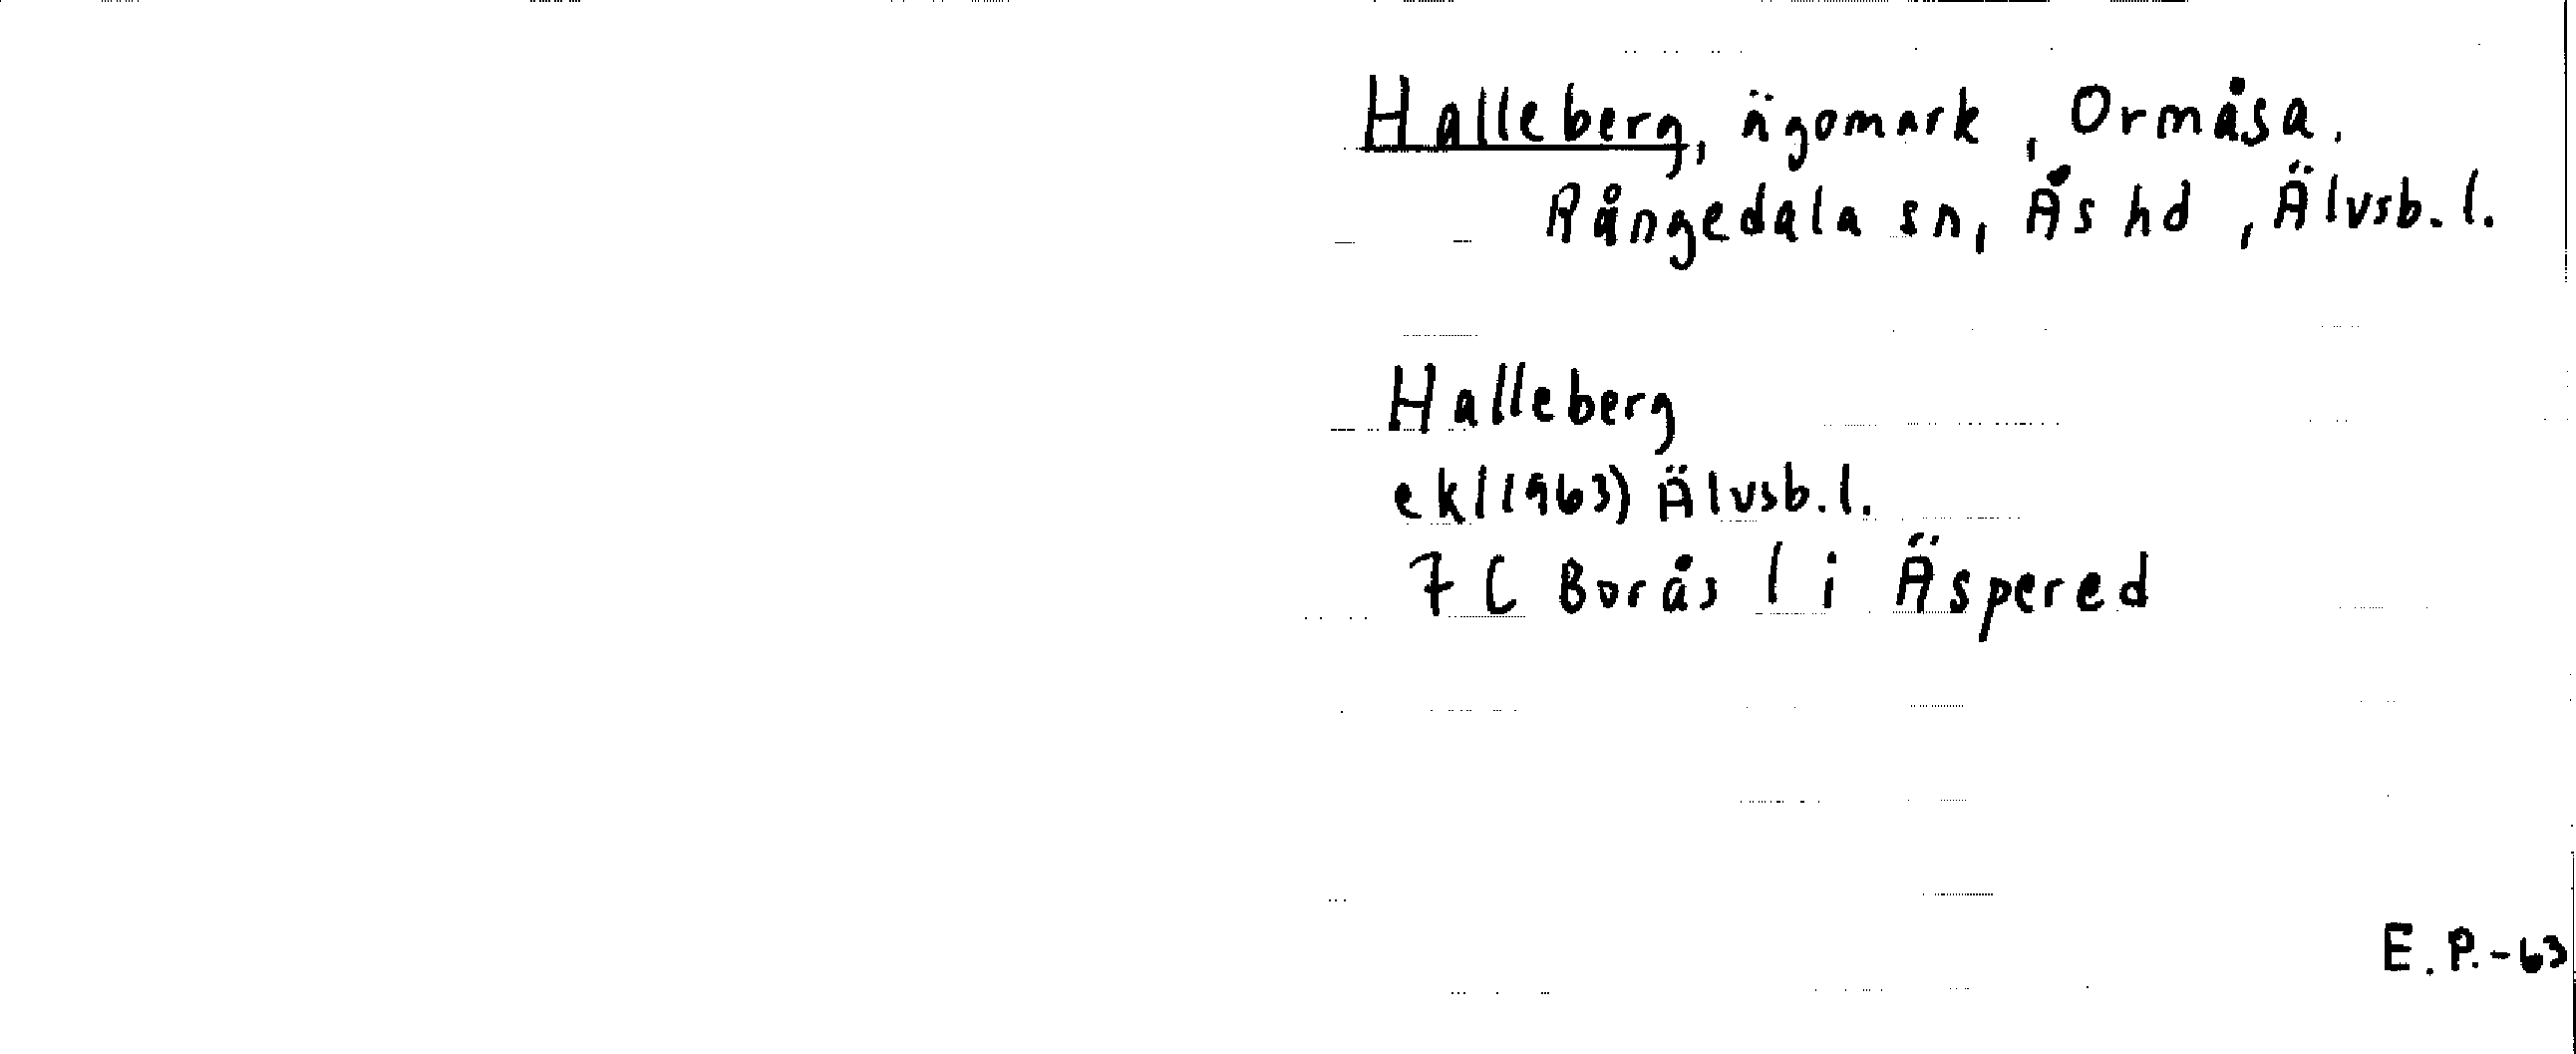 Halleberg, ägomark, Ormåsa.
Rångedala sn, Ås hd, Älvsb. l.
Halleberg
ek/1963) Älvsb. l.
7 C Borås l i Äspered
E.P.-63